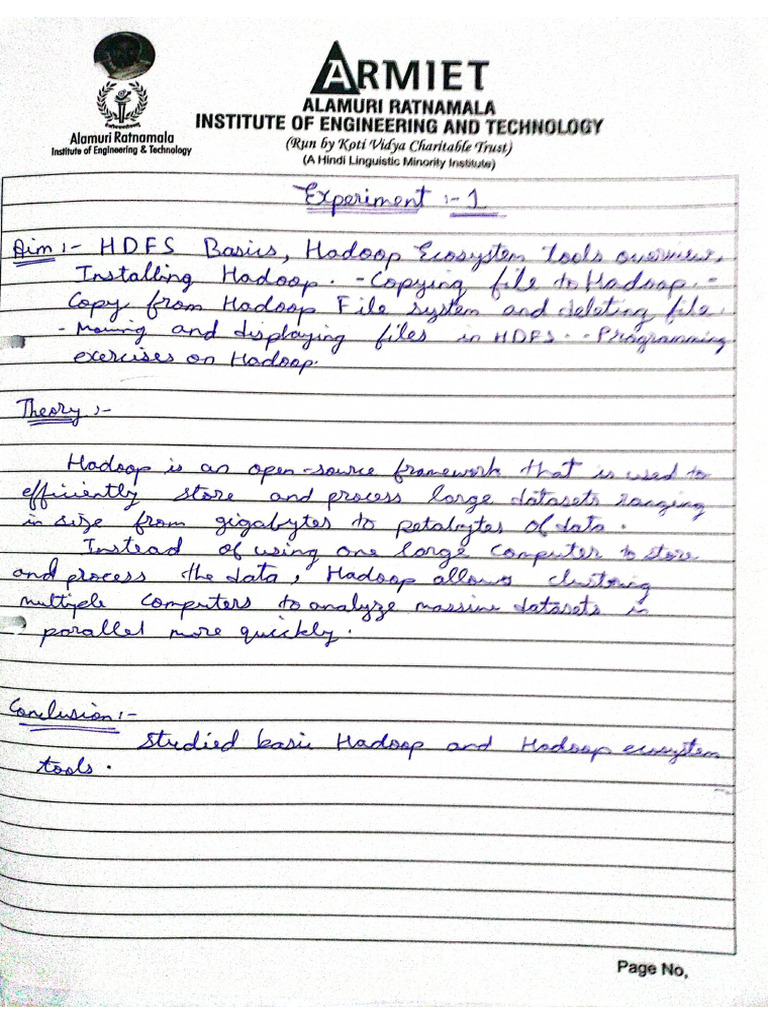 ARMIET
ALAMURI RATNAMALA
INSTITUTE OF ENGINEERING AND TECHNOLOGY
(Run by Koti Vidya Charitable Trust)
(A Hindi Linguistic Minority Institute)
Alamuri Ratnamala
Institute of Engineering & Technology
Experiment :- 1
Aim :- HDFS Basics, Hadoop Ecosystem tools overview,
Installing Hadoop. - Copying file to Hadoop. -
Copy from Hadoop File system and deleting file.
- Moving and displaying files in HDFS. - Programming
exercises on Hadoop.
Theory :-
Hadoop is an open-source framework that is used to
efficiently store and process large datasets ranging
in size from gigabytes to petabytes of data.
Instead of using one large computer to store
and process the data, Hadoop allows clustring
multiple computers to analyze massive datasets in
parallel more quickly.
Conclusion :-
Studied basic Hadoop and Hadoop ecosystem
tools.
Page No,